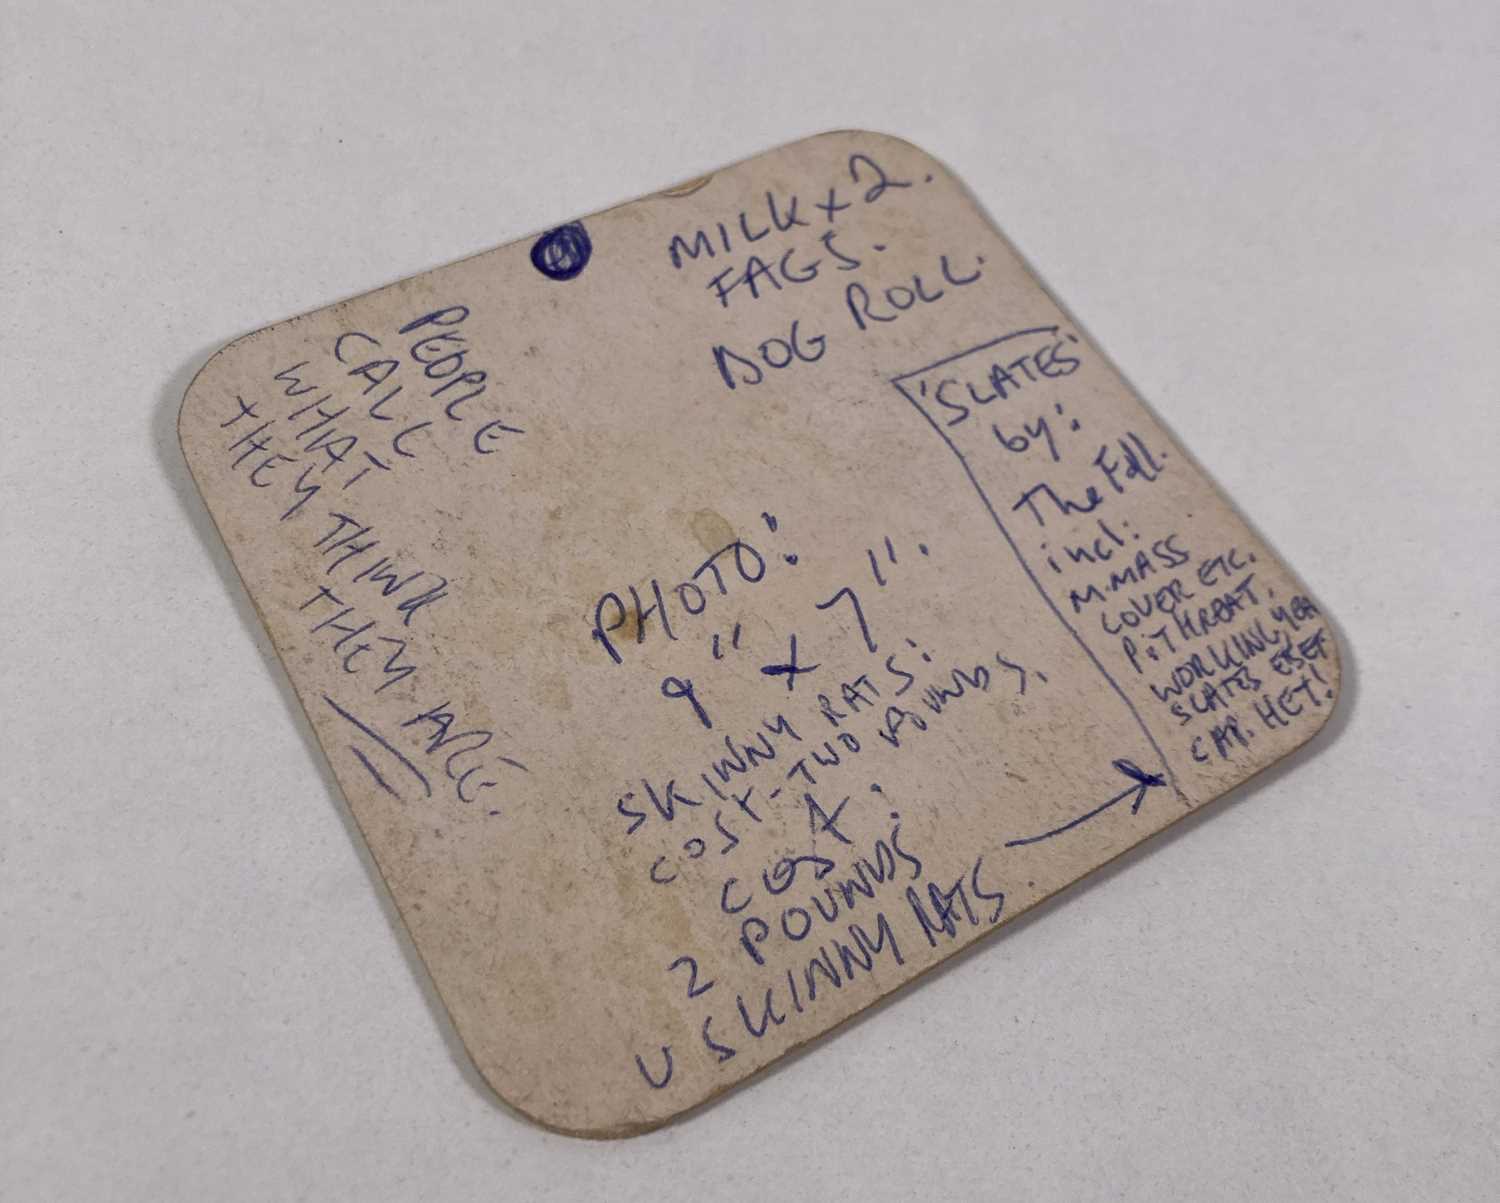 MILK x 2.
FAGS.
BOG ROLL.
PEOPLE
CALL
WHAT
THEY THINK
THEY ARE.
'SLATES'
by:
The Fall.
incl:
M.MASS
COVER ETC.
P.THREAT.
WORKING, YEA
SLATES ESET
CAP. HET!
PHOTO:
9" x 7".
SKINNY RATS:
COST-TWO POUNDS.
COST:
2 POUNDS
U SKINNY RATS